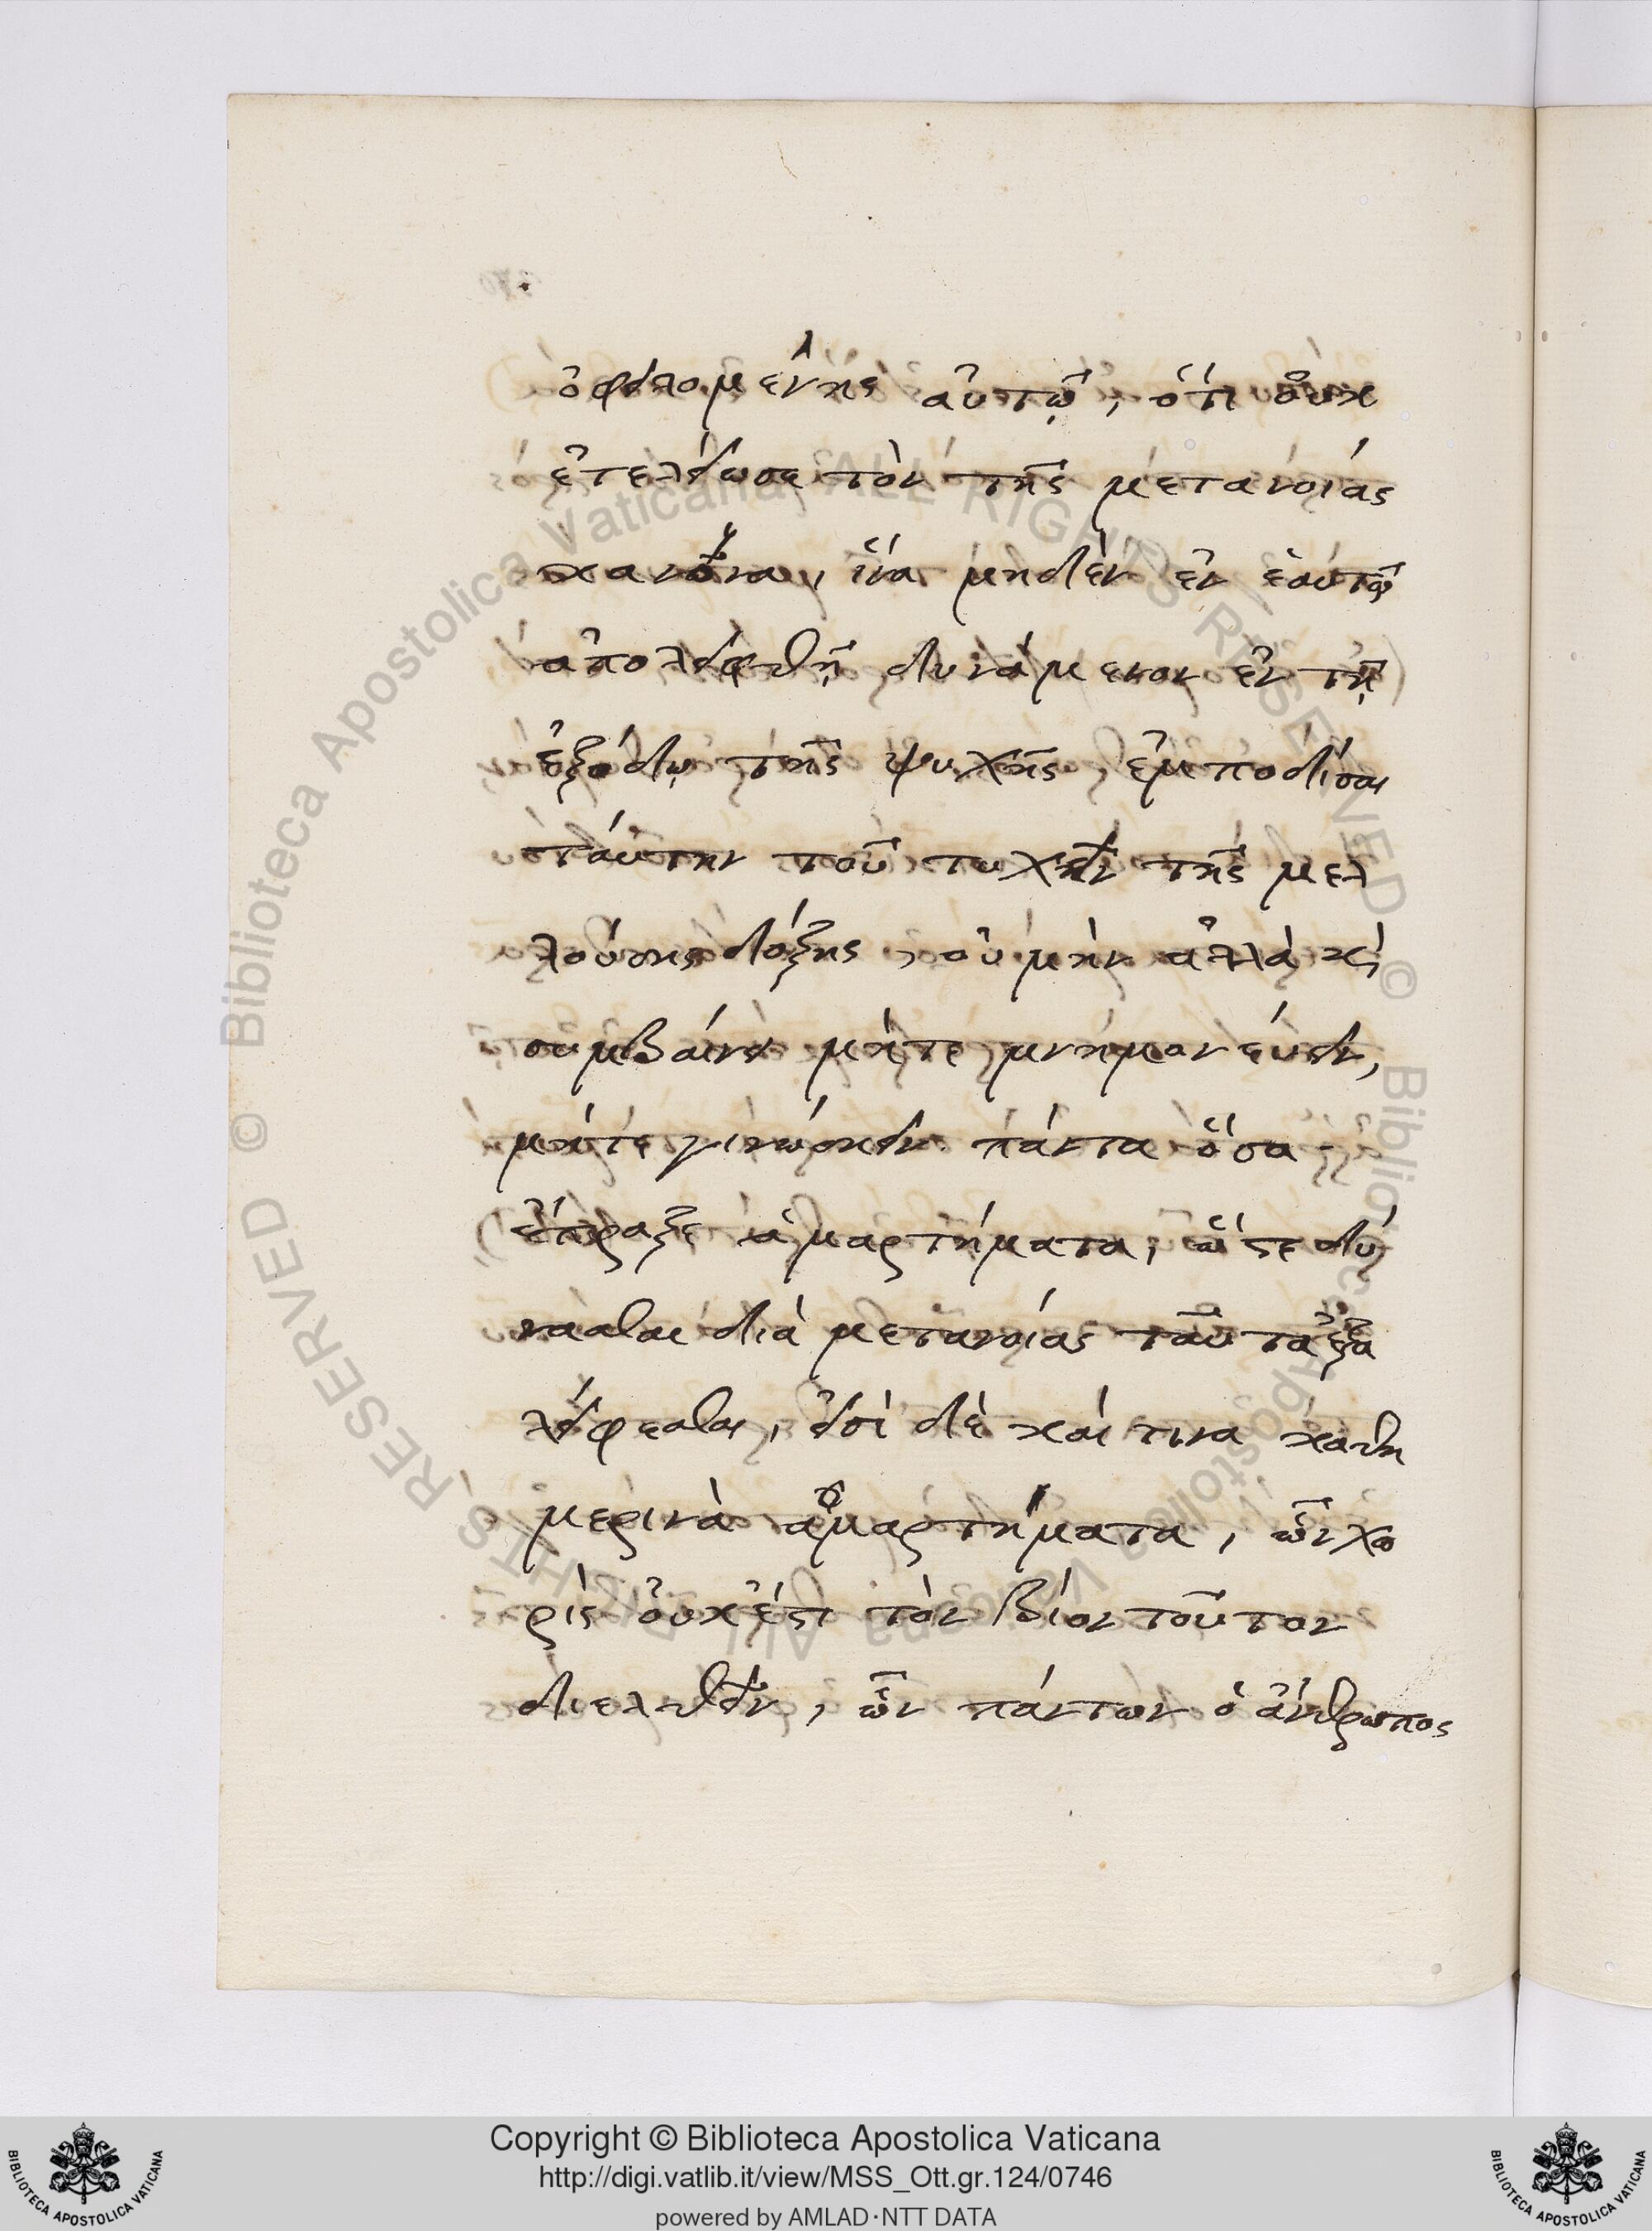 ὀφειλομένης αὐτῷ, ὅτι οὐκ
ἐτελείωσε τὸν τῆς μετανοίας
κανόνα, ἵνα μηδὲν ἐν ἑαυτῷ
ἀπολειφθῇ δυνάμενον ἐν τῇ
ἐξόδῳ τῆς ψυχῆς ἐμποδίσαι
ταύτην τοῦ τυχεῖν τῆς μελ
λούσης δόξης, οὐ μὴν ἀλλὰ κ̀
συμβαίνει μήτε μνημονεύειν,
μήτε γινώσκειν πάντα ὅσα
ἔπραξε ἁμαρτήματα, ὥστε δύ
νασθαι διὰ μετανοίας ταῦτα ἐξα
λείφεσθαι, εἰσὶ δὲ καί τινα καθη
μερινὰ ἁμαρτήματα, ὧν χω
ρὶς οὐκ ἔστι τὸν βίον τοῦτον
διελθεῖν, ὧν πάντων ὁ ἄνθρωπος
Copyright © Biblioteca Apostolica Vaticana
http://digi.vatlib.it/view/MSS_Ott.gr.124/0746
powered by AMLAD·NTT DATA
BIBLIOTECA APOSTOLICA VATICANA
BIBLIOTECA APOSTOLICA VATICANA
© Biblioteca Apostolica Vaticana ALL RIGHTS RESERVED © Biblioteca Apostolica Vaticana ALL RIGHTS RESERVED